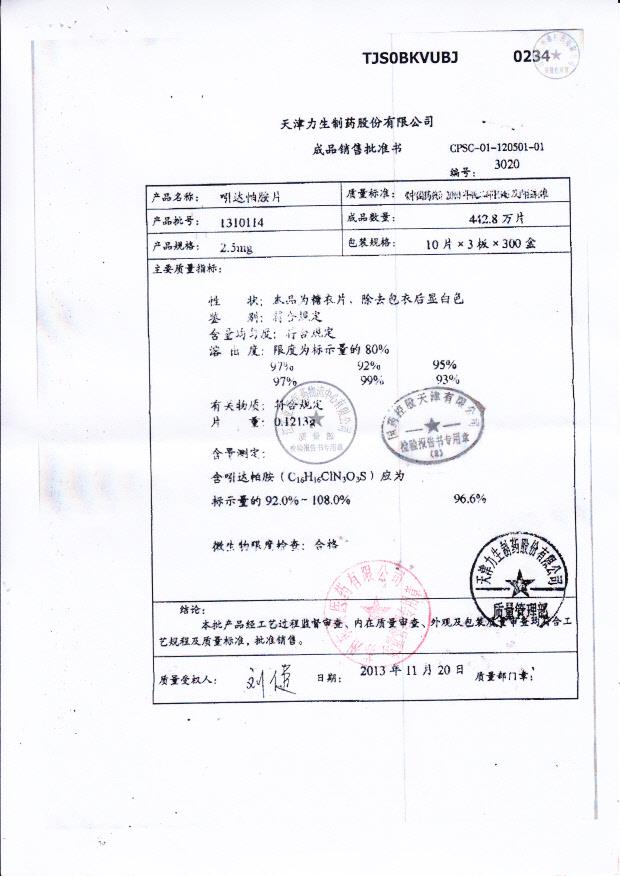 TJS0BKVUBJ 0234
天津力生制药股份有限公司
成品销售批准书 CPSC-01-120501-01
编号: 3020
产品名称: 吲达帕胺片 质量标准:
产品批号: 1310114 成品数量: 442.8 万片
产品规格: 2.5mg 包装规格: 10 片×3 板×300 盒
主要质量指标:
性 状: 本品为糖衣片、除去包衣后显白色
鉴 别: 符合规定
含量均匀度: 符合规定
溶 出 度: 限度为标示量的 80%
97% 92% 95%
97% 99% 93%
有关物质: 符合规定
片 重: 0.1213g
含量测定:
含吲达帕胺(C16H16ClN3O3S)应为
标示量的 92.0%~108.0% 96.6%
微生物限度检查: 合格
国药控股天津有限公司
检验报告书专用章
(8)
质量部
检验报告书专用章
天津力生制药股份有限公司
质量管理部
结论:
本批产品经工艺过程监督审查、内在质量审查、外观及包装质量审查均符合工
艺规程及质量标准, 批准销售。
质量受权人: 日期: 2013 年 11 月 20 日 质量部门章: